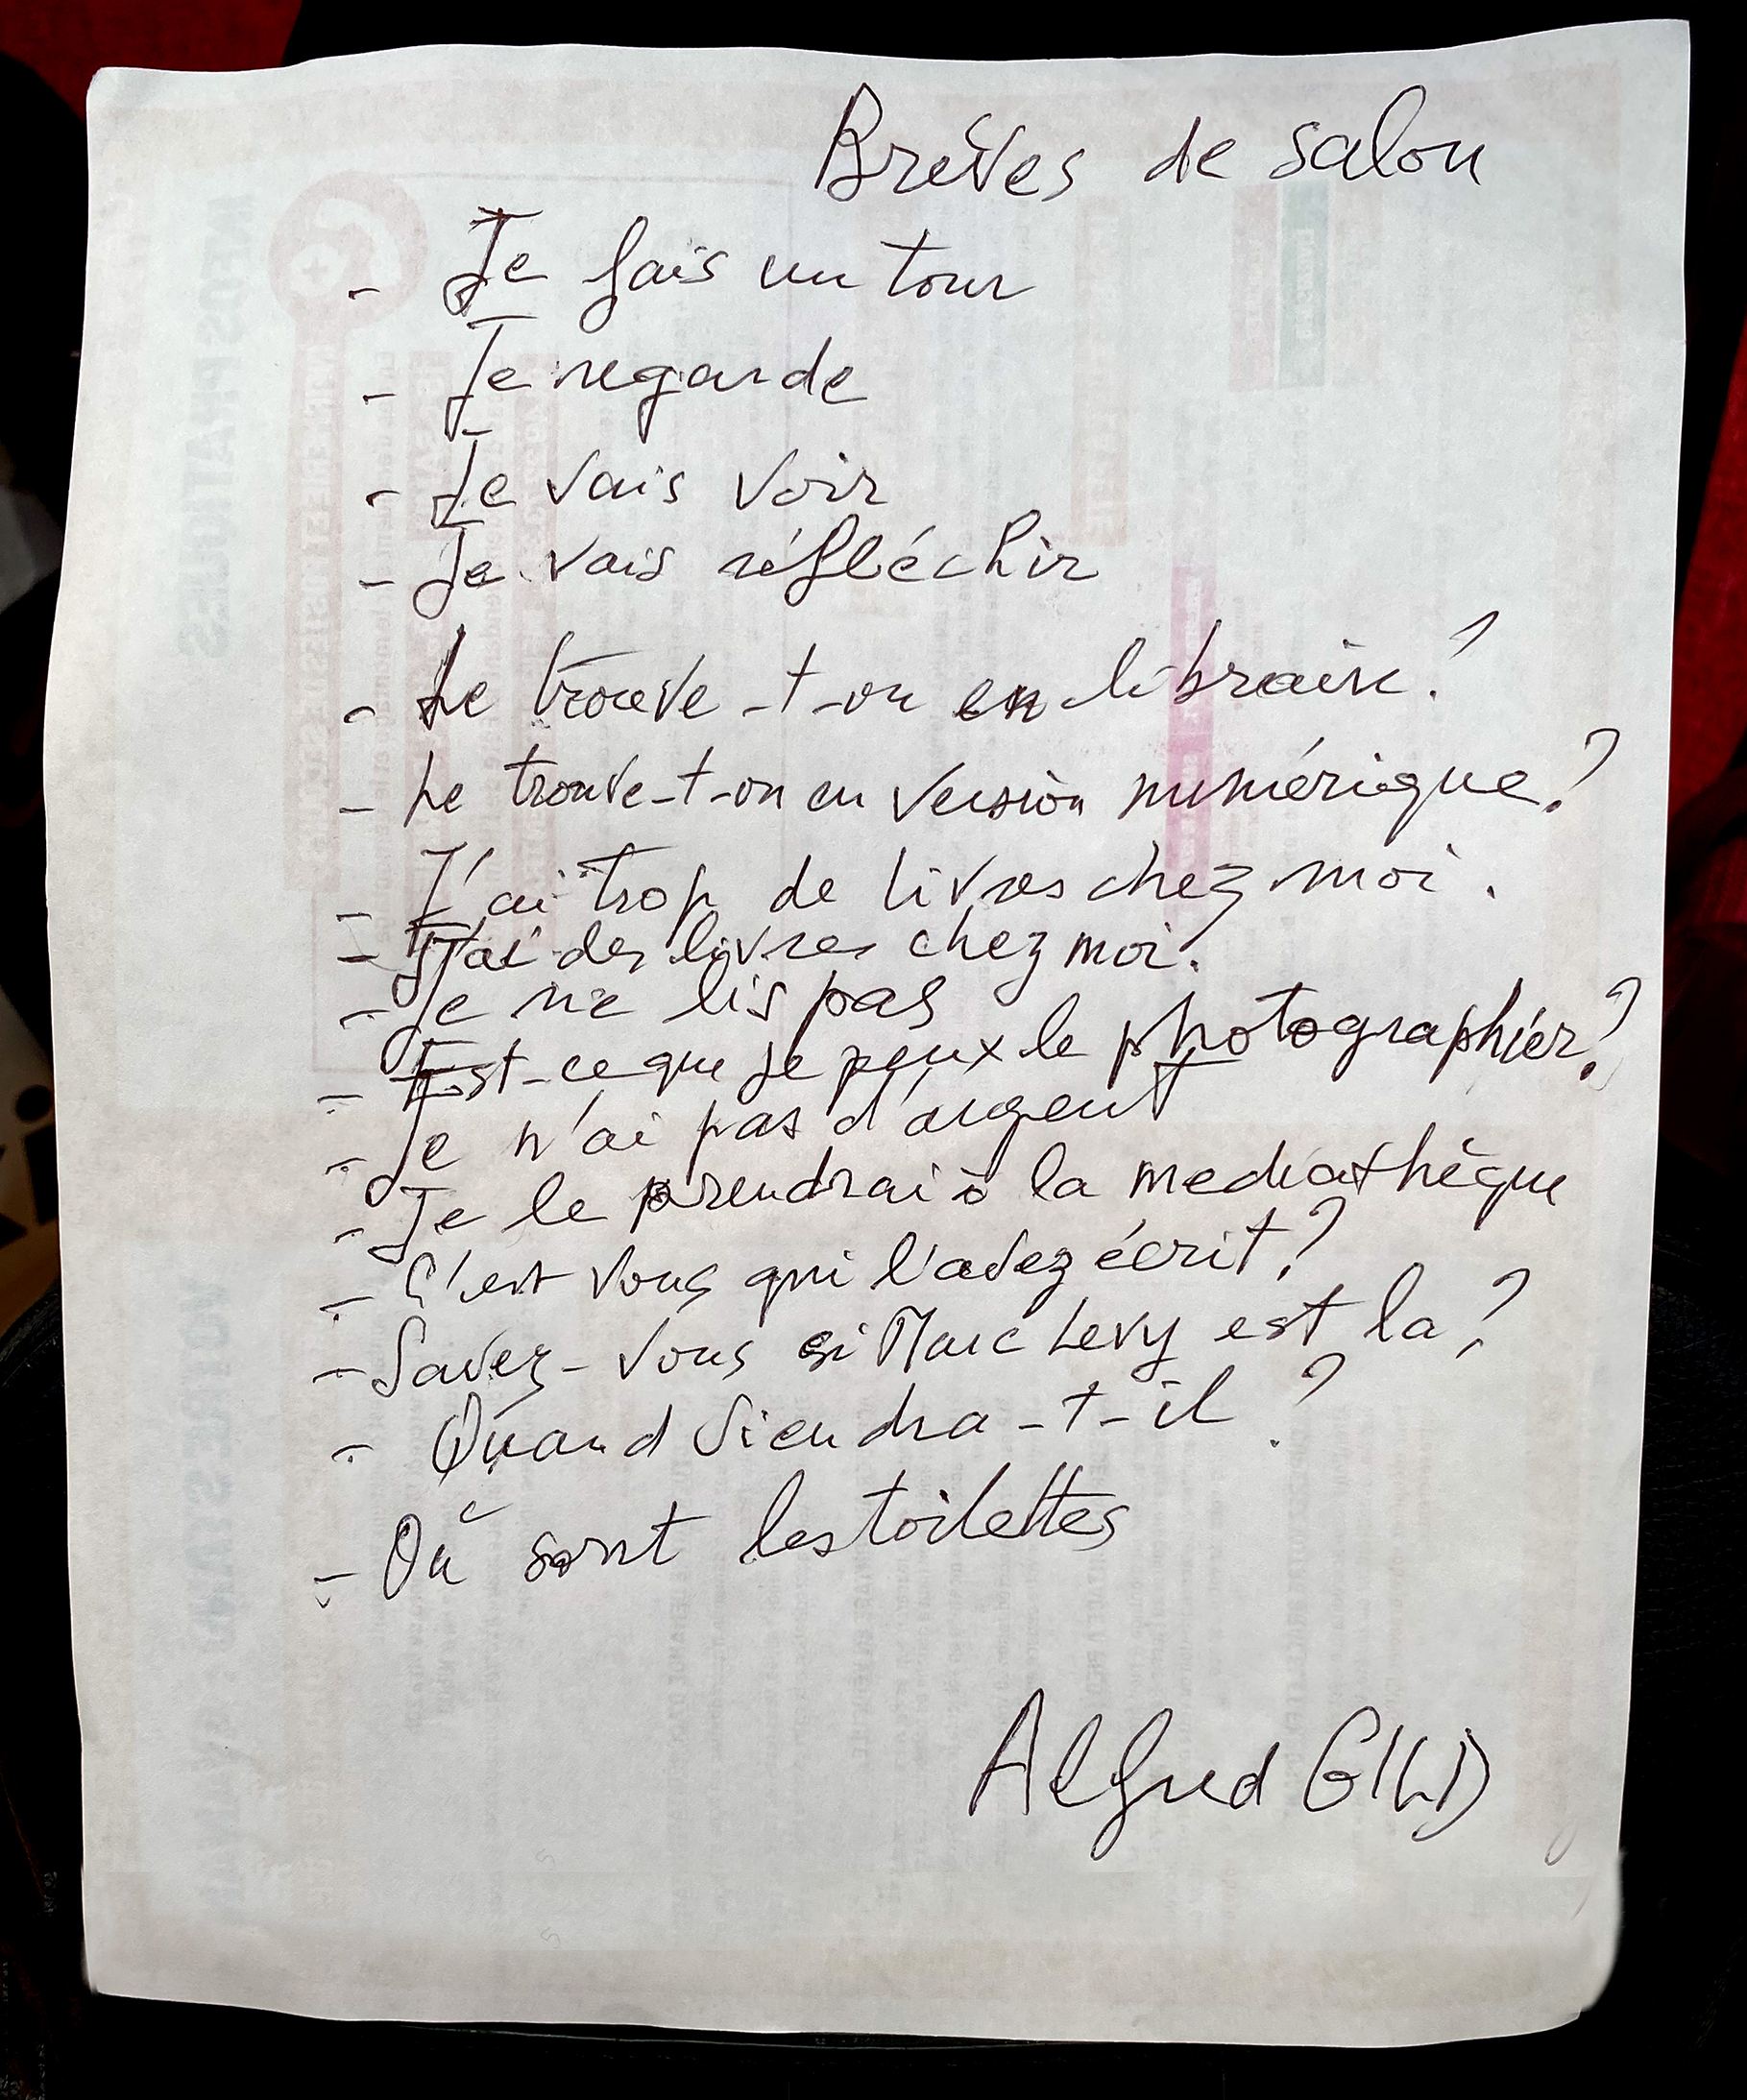 Brèves de salon
- Je fais un tour
- Je regarde
- Je vais voir
- Je vais réfléchir
- Le trouve-t-on en librairie?
- Le trouve-t-on en version numérique?
- J'ai trop de livres chez moi.
- J'ai des livres chez moi.
- Je ne lis pas
- Est-ce que je peux le photographier?
- Je n'ai pas d'argent
- Je le prendrai à la mediathèque
- C'est vous qui l'avez écrit?
- Savez-vous si Marc Levy est la?
- Quand viendra-t-il?
- Où sont les toilettes
Alfred